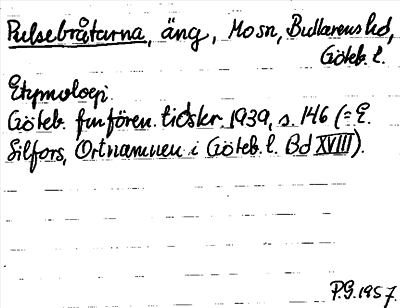 Pulsebråtarna, äng, Mosn, Bullarens hd,
Göteb. l.
Etymologi.
Göteb. fmfören. tidskr. 1939, s. 146 (= E.
Silfors, Ortnamnen i Göteb. l. Bd XVIII).
P.G. 1957.